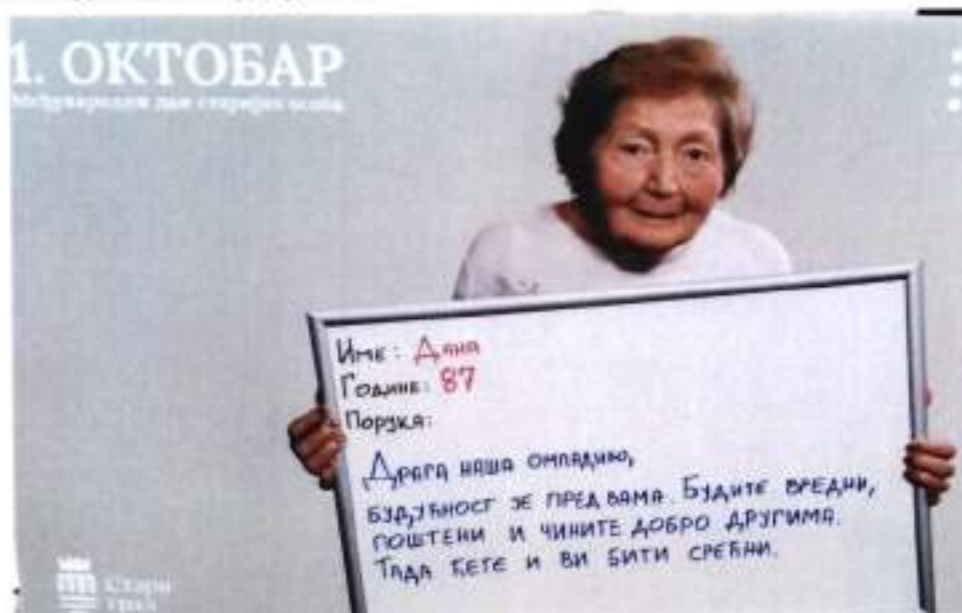 1. ОКТОБАР
Међународни дан старијих особа
Име: Дана
Године: 87
Порука:
Драга наша омладино,
БУДУЋНОСТ ЈЕ ПРЕД ВАМА. БУДИТЕ ВРЕДНИ,
ПОШТЕНИ И ЧИНИТЕ ДОБРО ДРУГИМА.
ТАДА ЋЕТЕ И ВИ БИТИ СРЕЋНИ.
Стари
град